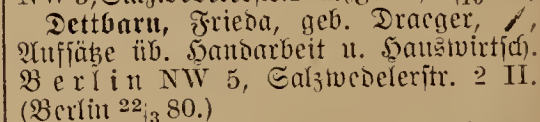 Dettbarn, Frieda, geb. Draeger, /,
Aufsätze üb. Handarbeit u. Hauswirtsch.
Berlin NW 5, Salzwedelerstr. 2 II.
(Berlin 22/3 80.)